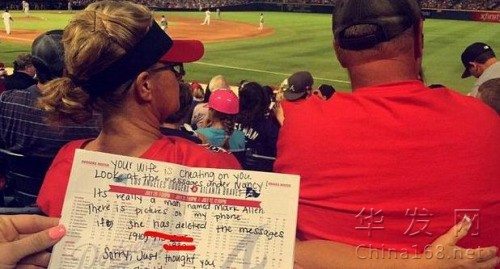 xfinity
your wife is cheating on you
Look at the messages under Nancy
LOS ANGELES DODGERS ATLANTA BRAVES
Its really a man named Mark Allen
There is pictures on my phone
if she has deleted the messages
Sorry, Just thought you
华发网
China168.net